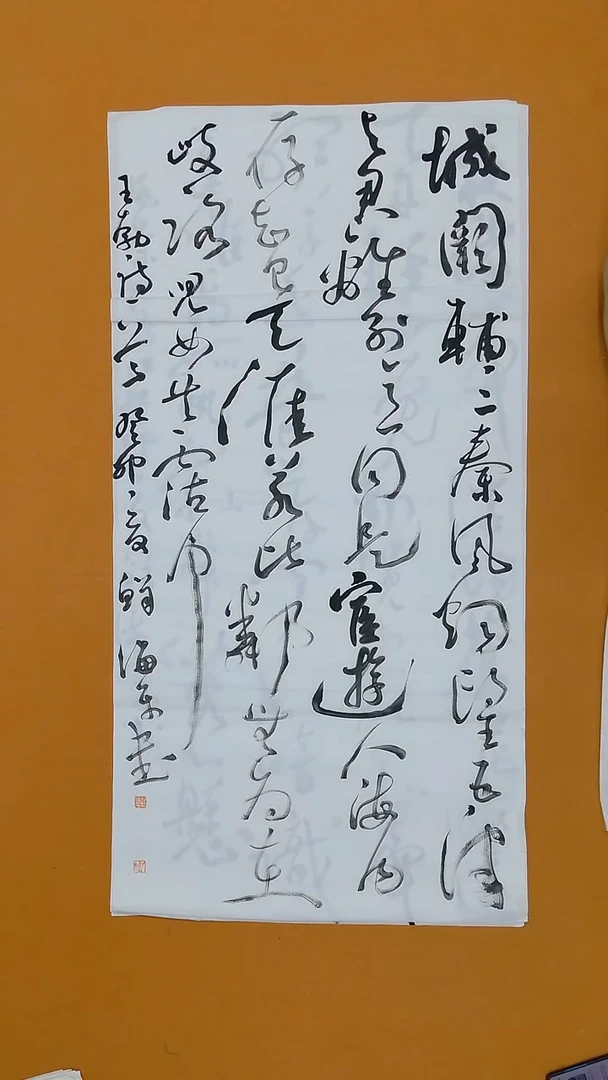 城闕輔三秦風烟望五津
与君離別意同是宦遊人海内
存知己天涯若比鄰無為在
歧路兒女共霑巾
王勃詩一首癸卯之夏鲜海書